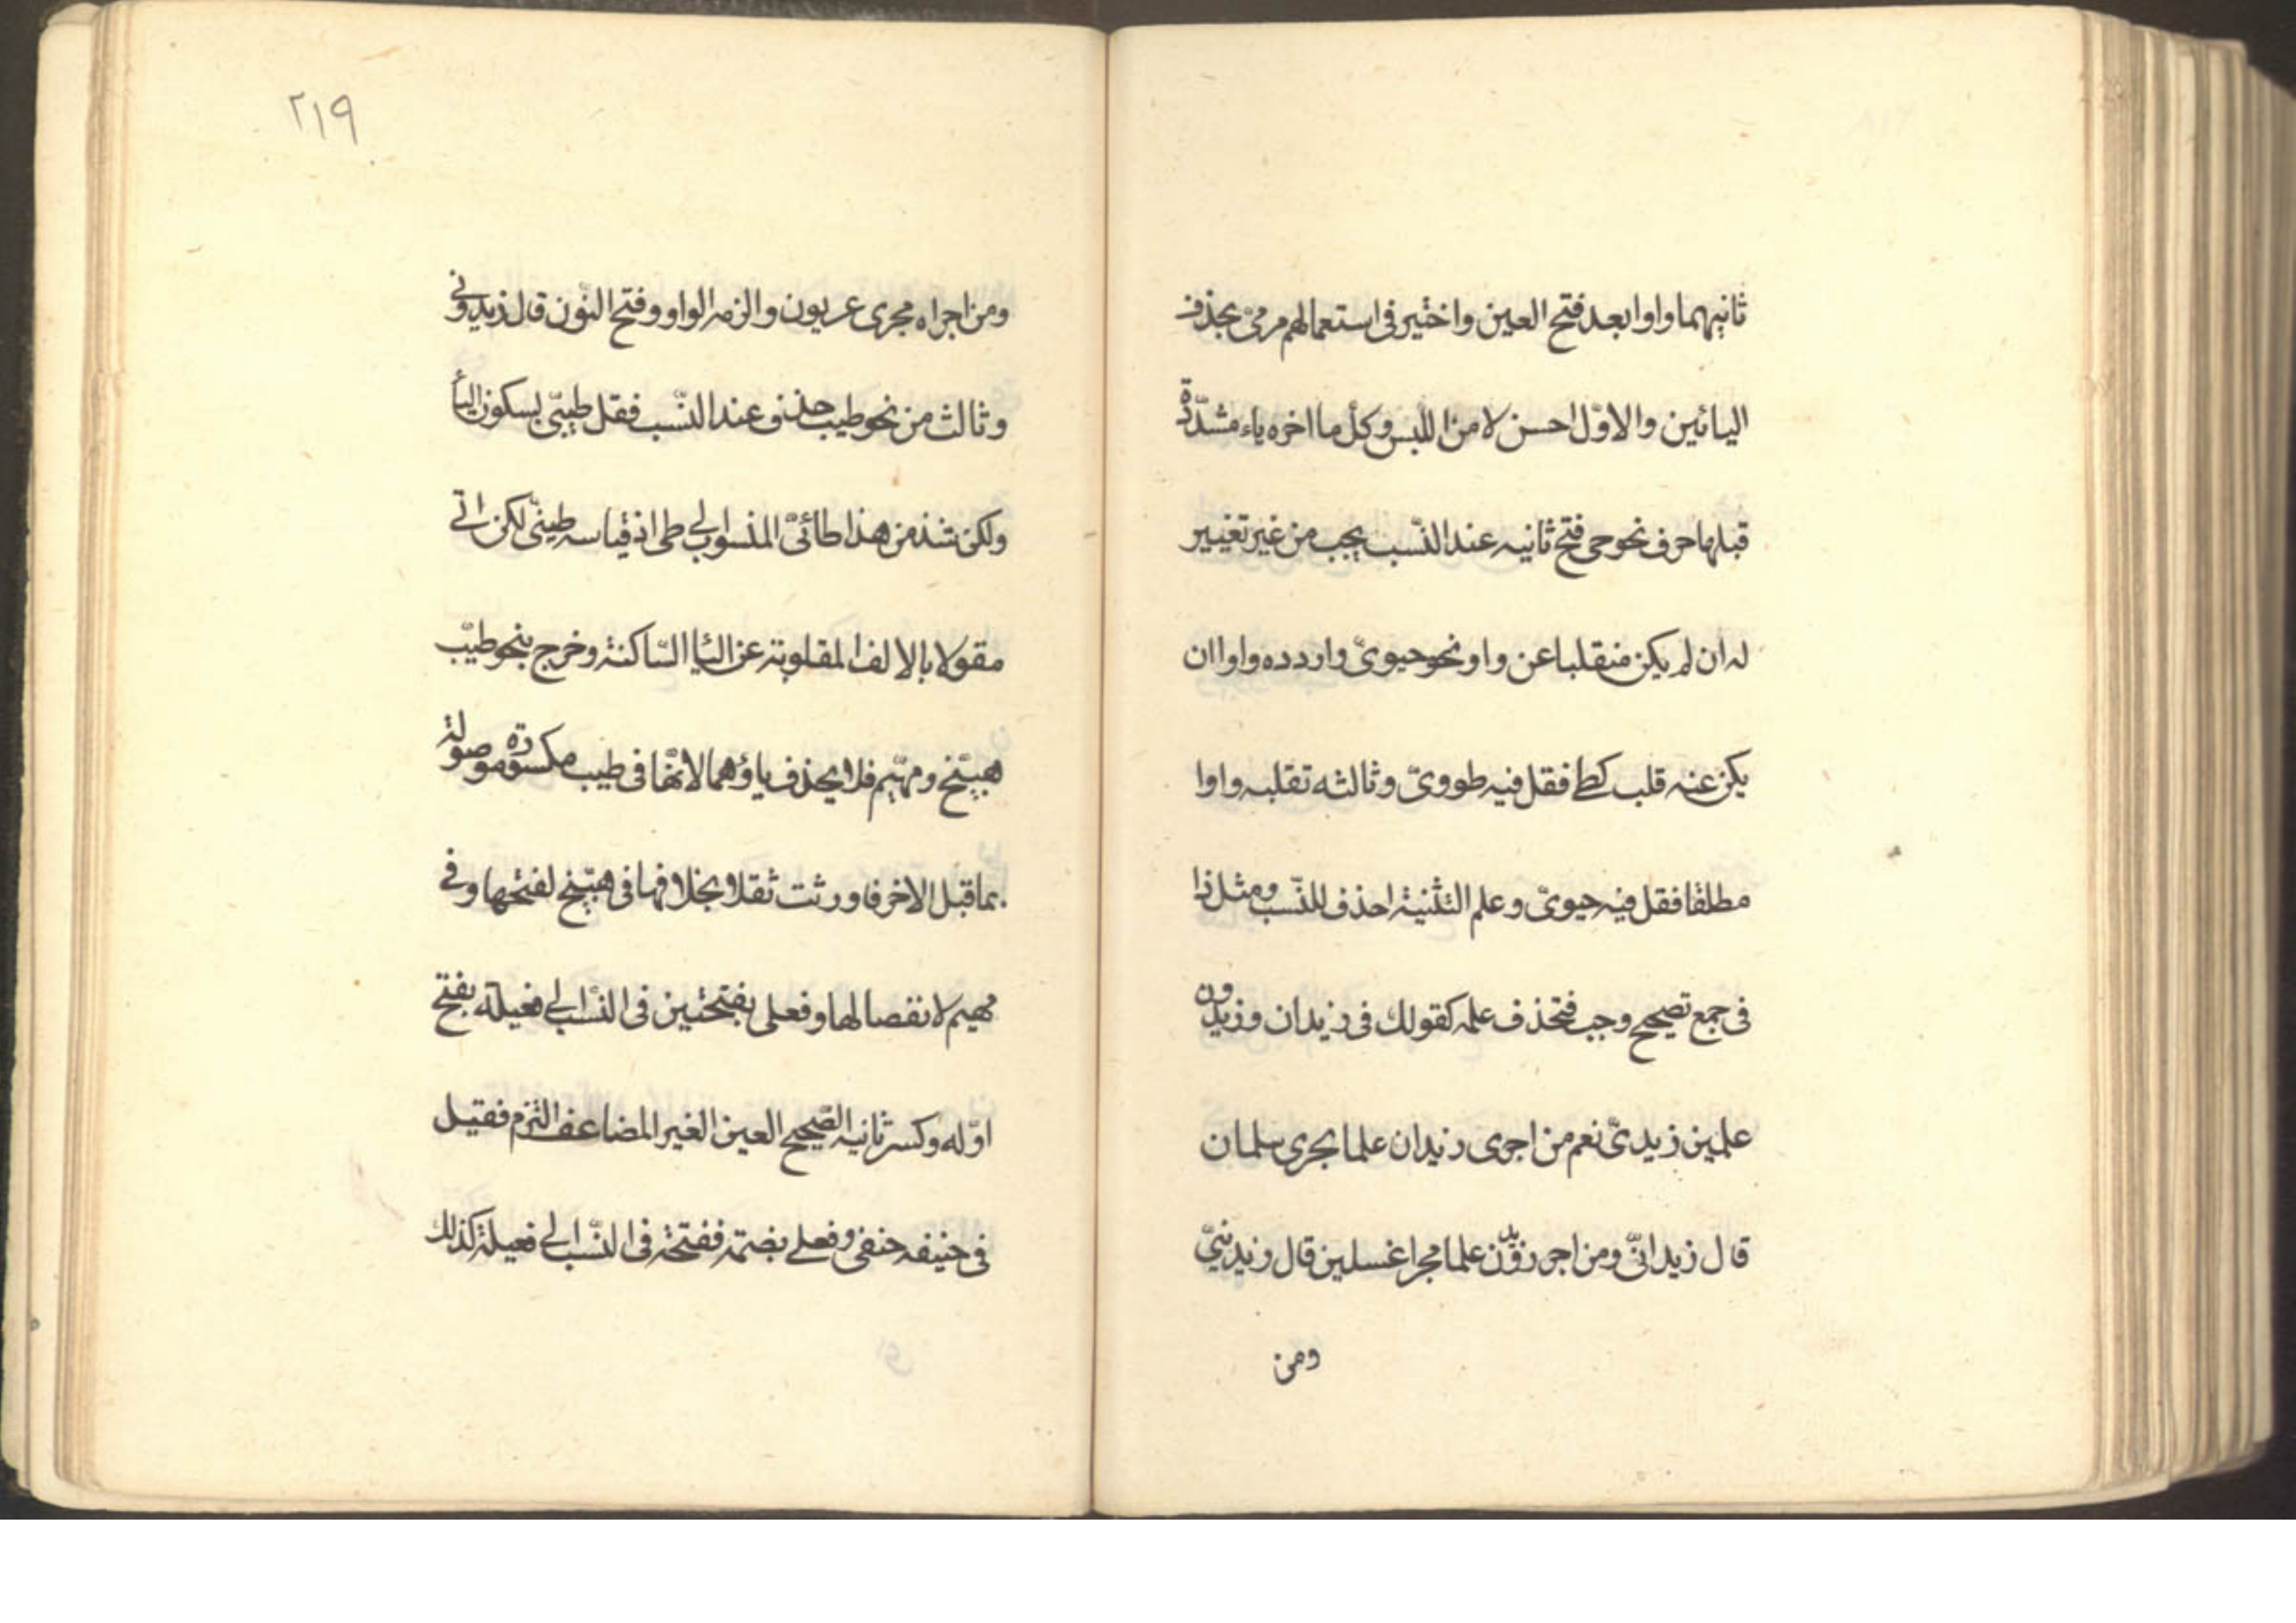 ثانيهما واوا بعد فتح العين واختير في استعمالهم مرميّ بحذف
اليائين والاوّل احسن لامن اللبس وكلّ ما اخره ياء مشدّدة
قبلها حرف نحو حي فتح ثانيه عند النّسب يجب من غير تغيير
له ان لم يكن منقلبا عن واو نحو حيويّ واردده واوا ان
يكن عنه قلب كطي فقل فيه طوويّ وثالثه تقلبه واوا
مطلقا فقل فيه حيويّ وعلم التثنية احذف للنّسب ومثل ذا
في جمع تصحيح وجب فتحذف علمه كقولك في زيدان وزيدون
علمين زيديّ نعم من اجرى زيدان علما بجرى سلمان
قال زيدانّي ومن اجر زيدون علما مجرا غسلين قال وزيدينيّ
ومن
٢١٩
ومن اجراه مجرى عربون والزمه الواو وفتح النّون قال زيدوني
وثالث من نحو طيب حذف وعند النّسب فقل طيبّي بسكون اليأ
ولكن شذ من هذا طائيّ المنسواب الي طي اذ قياسه طيئّي لكن اتي
مقولا بالالف المقلوبة عن اليأ السّاكنة وخرج بنحو طيّب
هبيّخ ومهيّم فلا يحذف ياؤهما لانّها في طيب مكسورة موصولة
بما قبل الاخر فاورثت ثقلا بخلافها في هبّيخ لفتحها وفي
مهيم لانفصالها وفعلي بفتحتين في النّسب الي فعيلة بفتح
اوّله وكسر ثانيه الصّحيح العين الغير المضاعف التزم فقيل
في حنيفه حنفي وفعلي بضمّة ففتحة في النّسب الي فعيلة كذلك